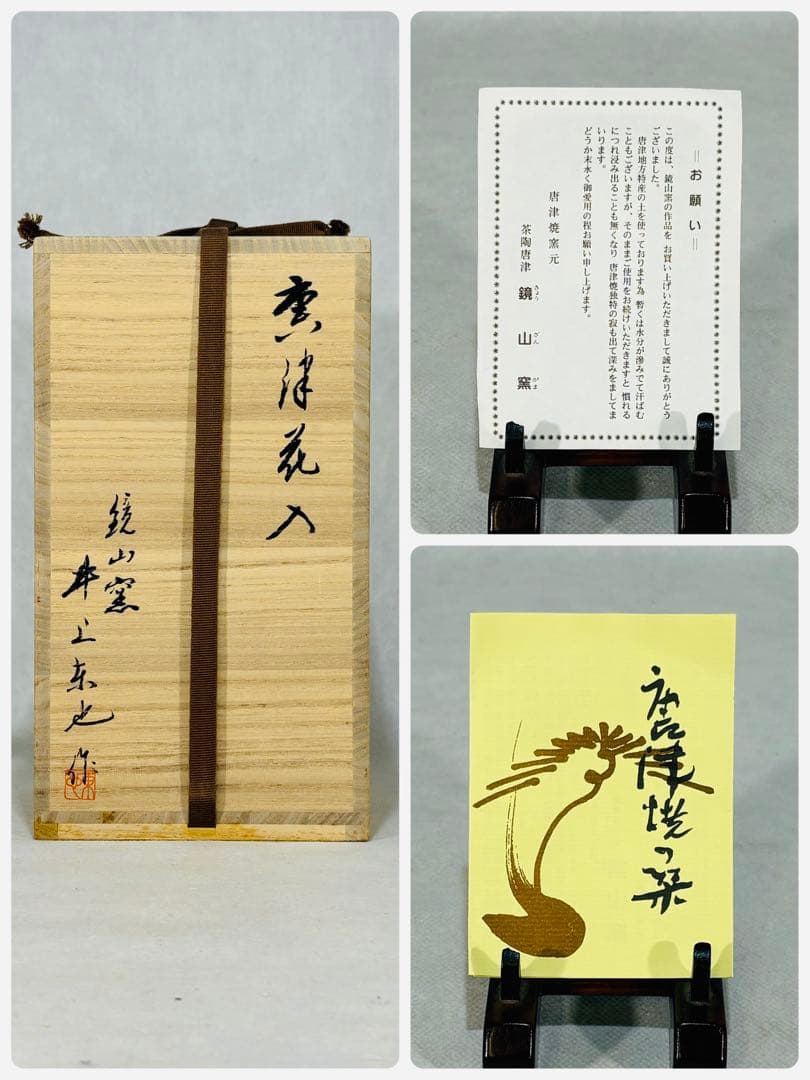 唐津花入
鏡山窯
井上東也作
＝お願い＝
この度は、鏡山窯の作品を お買い上げいただきまして誠にありがとう
ございました。
唐津地方特産の土を使っております為 暫くは水分が滲みでて汗ばむ
こともございますが、そのままご使用をお続けいただきますと 慣れる
につれ浸み出ることも無くなり 唐津焼独特の寂も出て深みをましてま
いります。
どうか末永く御愛用の程お願い申し上げます。
唐津焼窯元
茶陶唐津 鏡山窯
きょう ざん がま
唐津焼の栞